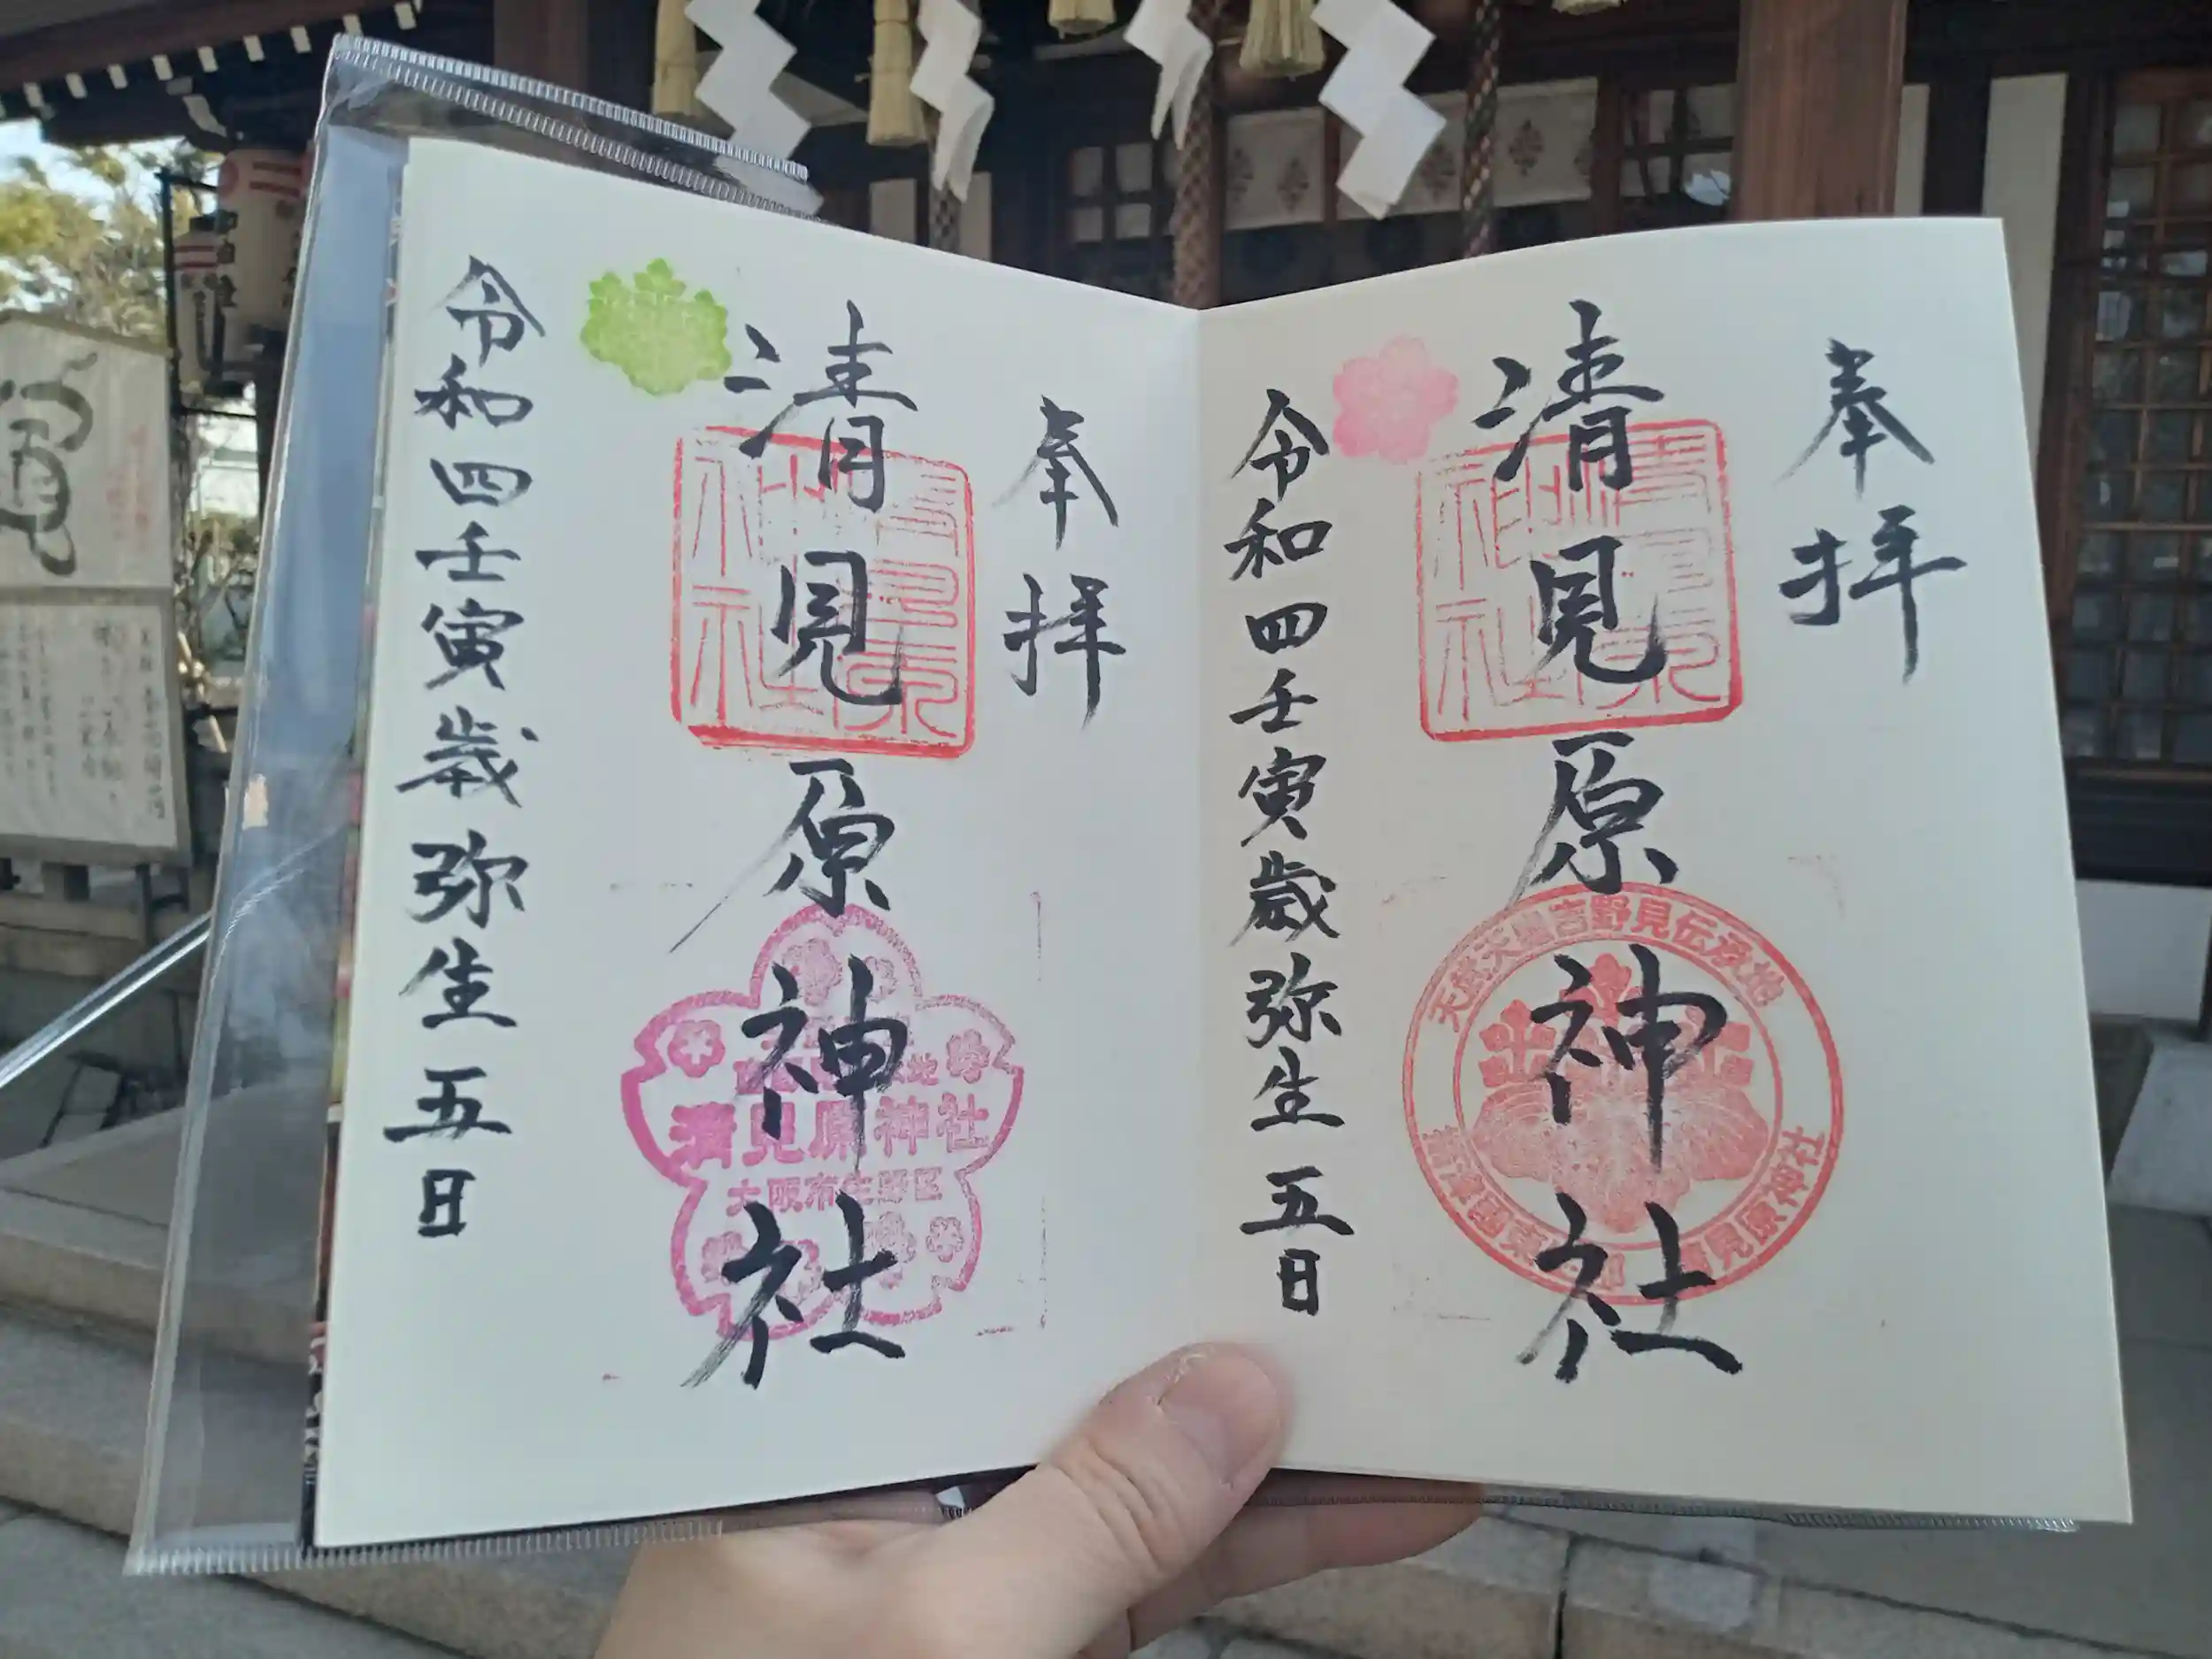 奉拝
清見原神社
清見原神社
天武天皇吉野見伝承地
清見原神社
令和四壬寅歳弥生五日
奉拝
清見原神社
清見原神社
清見原神社
大阪市生野区
令和四壬寅歳弥生五日
寅